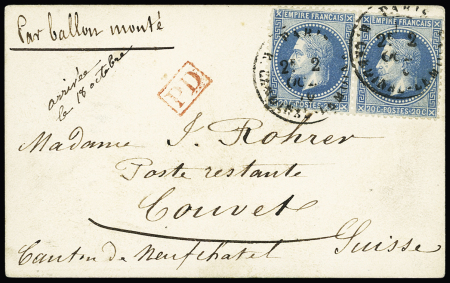 Par ballon monté
arrivée
le 18 octobre
P.D.
EMPIRE FRANÇAIS
EMPIRE FRANÇAIS
POSTES 20C
20C POSTES 20C
PARIS
PARIS
2
2
Madame J. Rohrer
Poste restante
Couvet
Canton de Neufchatel Suisse